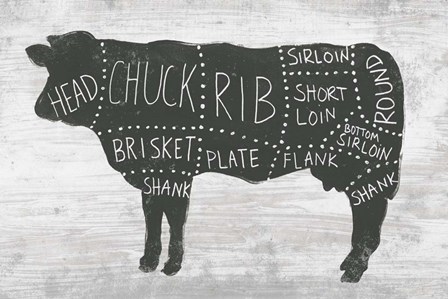 HEAD
CHUCK
RIB
SIRLOIN
SHORT
LOIN
ROUND
BRISKET
PLATE
FLANK
BOTTOM
SIRLOIN
SHANK
SHANK